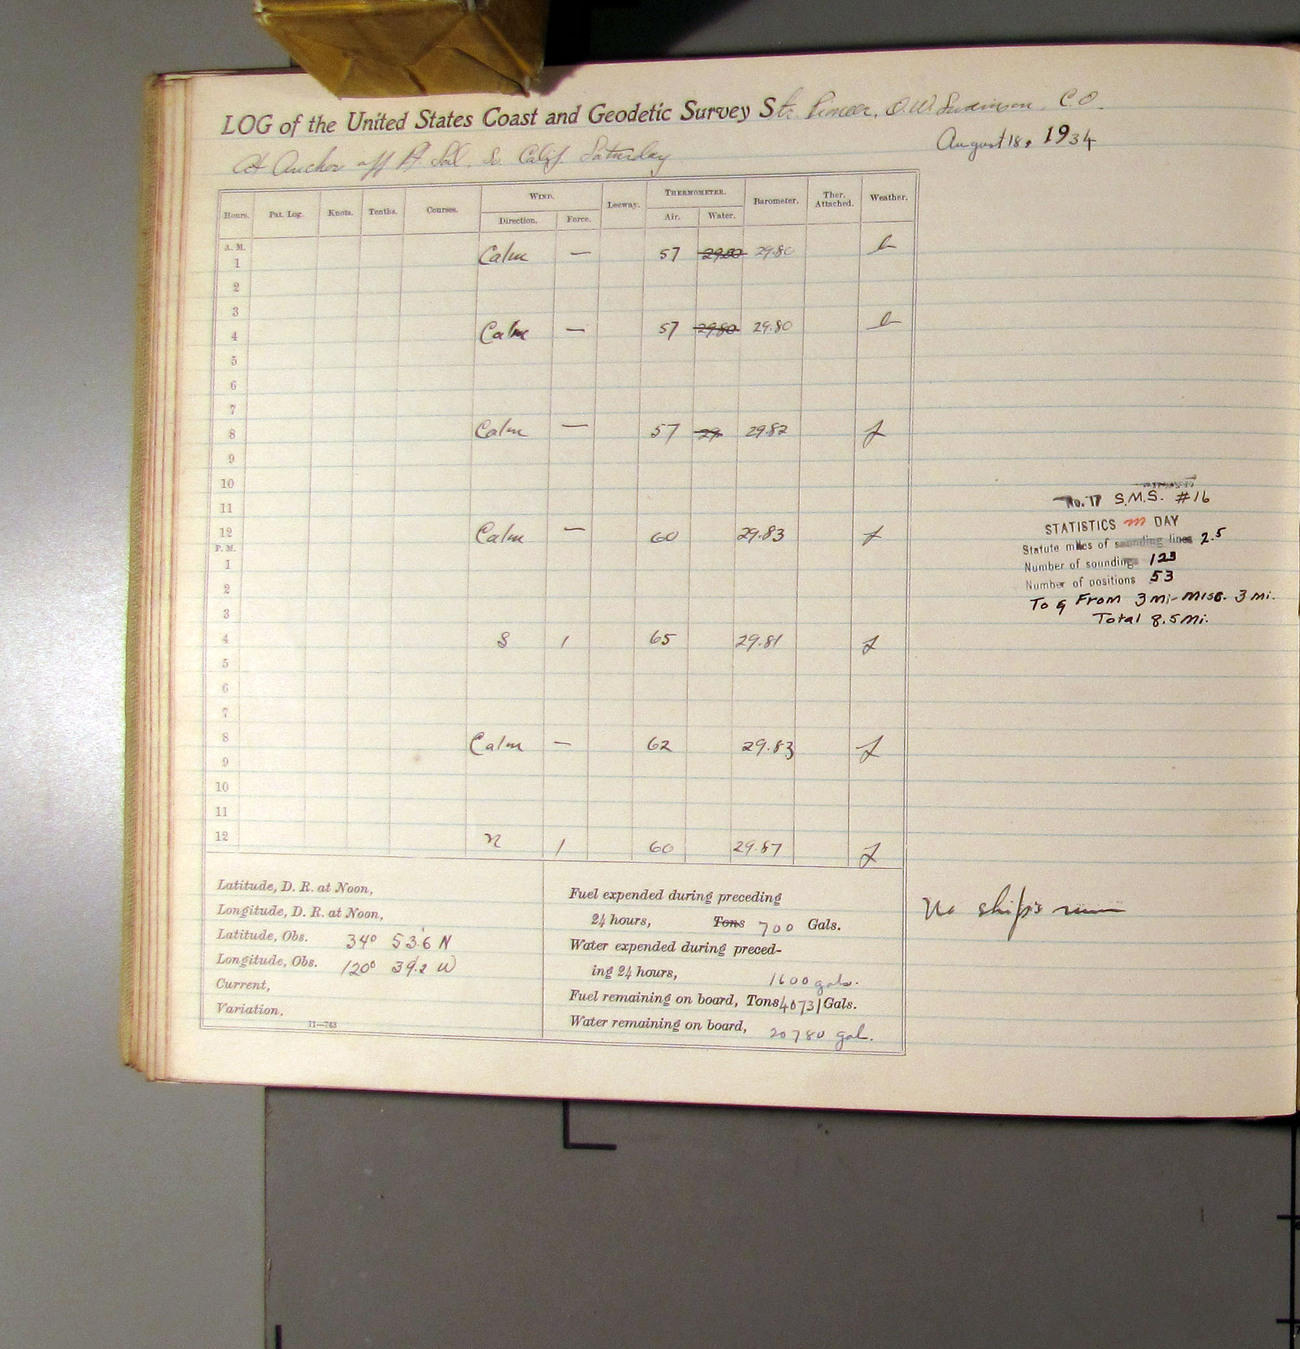 LOG of the United States Coast and Geodetic Survey Str. Pioneer, O.W. Swainson, C.O.
August 18, 1934
At Anchor off Pt. Sal, S. Calif. Saturday
Hours. Pat. Log. Knots. Tenths. Courses. WIND. Leeway. THERMOMETER. Barometer. Ther. Attached. Weather.
Direction. Force. Air. Water.
A. M.
1 Calm — 57 29.80 29.80 b
2
3
4 Calm — 57 29.80 29.80 b
5
6
7
8 Calm — 57 29. 29.82 f
9
10
11
12 Calm — 60 29.83 f
P. M.
1
2
3
4 S 1 65 29.81 f
5
6
7
8 Calm — 62 29.83 f
9
10
11
12 N 1 60 29.87 f
No. 17 S.M.S. #16
STATISTICS m DAY
Statute miles of sounding lines 2.5
Number of soundings 123
Number of positions 53
To & From 3 mi - misc. 3 mi.
Total 8.5 mi.
No ship's run
Latitude, D. R. at Noon,
Longitude, D. R. at Noon,
Latitude, Obs. 34° 53.6 N
Longitude, Obs. 120° 39.2 W
Current,
Variation,
11—763
Fuel expended during preceding
24 hours, Tons 700 Gals.
Water expended during preced-
ing 24 hours, 1600 gals.
Fuel remaining on board, Tons 40731 Gals.
Water remaining on board, 20780 gal.